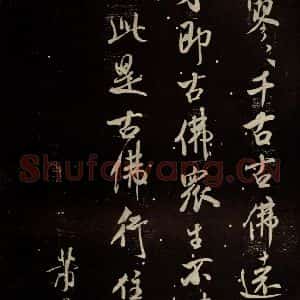 寥〻千古古佛遠
即古佛眾生不
此是古佛行住
Shufawang.cn